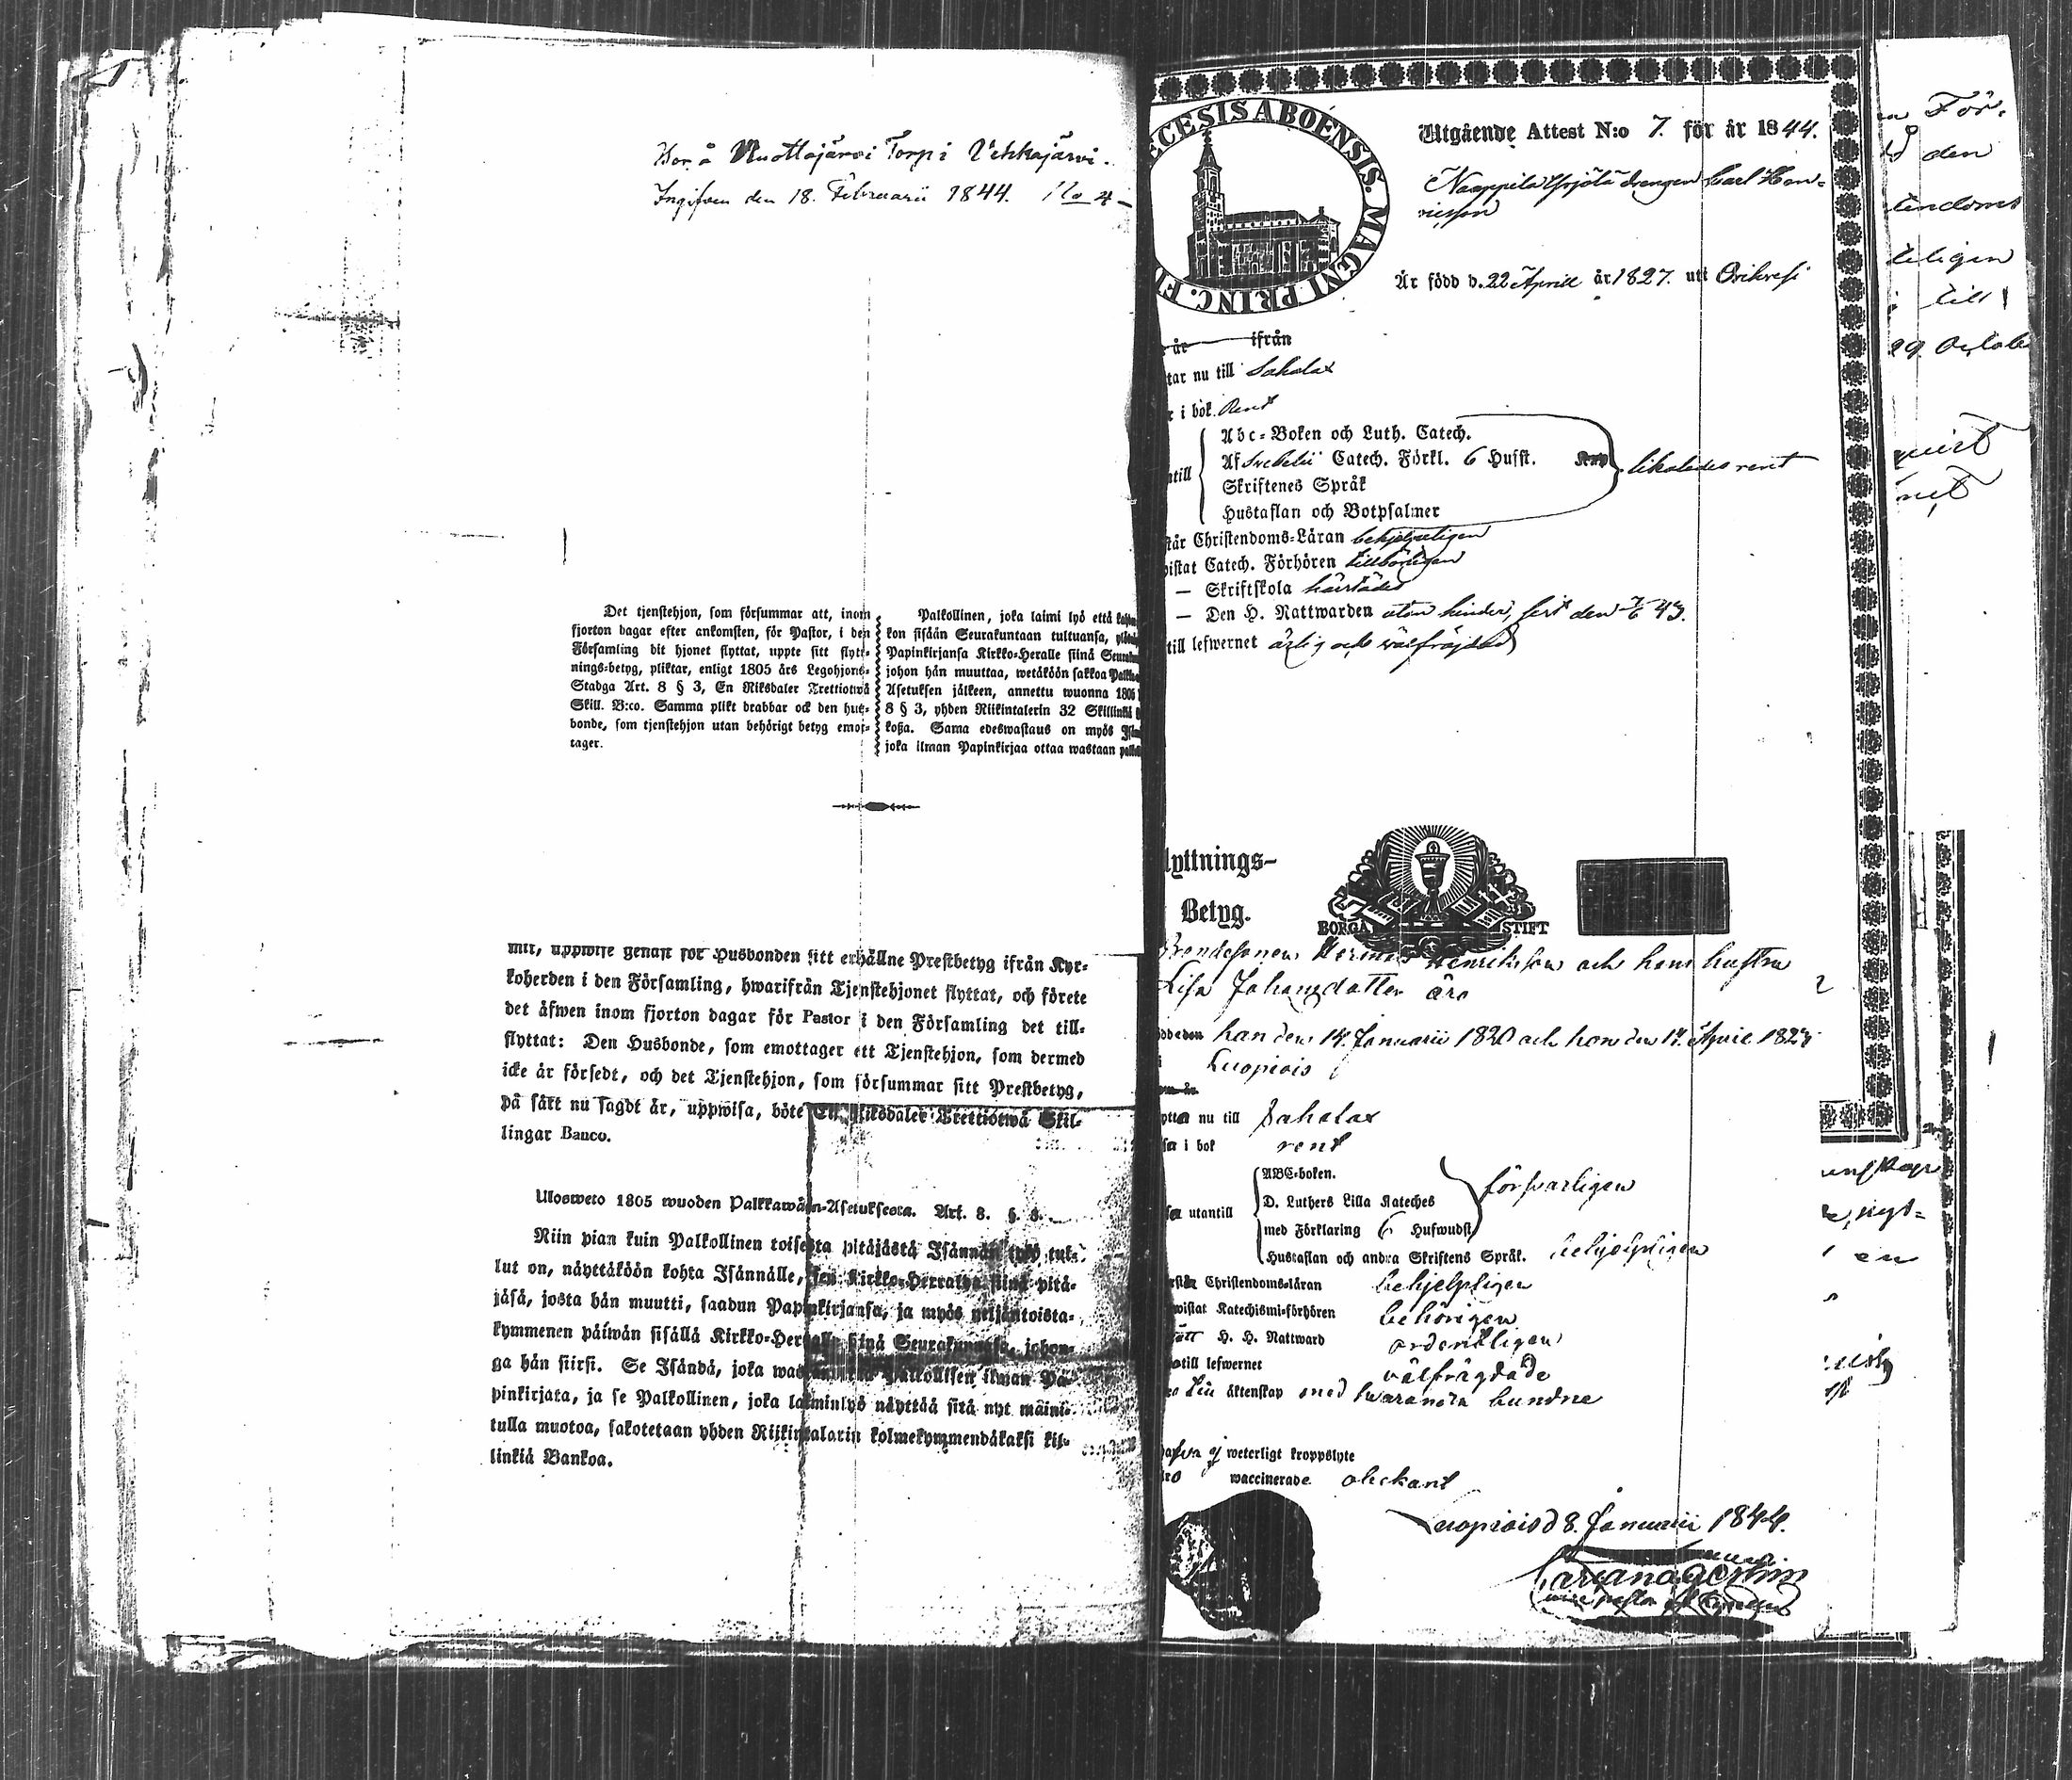 Bor å Nuottajärvi Torp i Vehkajärvi.
Ingifven den 18. Februarii 1844. No 4
Det tjenstehjon, som försummar att, inom
fjorton dagar efter ankomsten, för Pastor, i den
Församling dit hjonet flyttat, uppte sitt flytt-
nings-betyg, pliktar, enligt 1805 års Legohjons-
Stadga Art. 8 § 3, En Riksdaler Trettiotwå
Skill. B:co. Samma plikt drabbar ock den hus-
bonde, som tjenstehjon utan behörigt betyg emot-
tager.
Palkollinen, joka laimi lyö että
kon sisään Seurakuntaan tultuansa,
Papinkirjansa Kirkko-Heralle siinä
johon hän muuttaa, wetäköön sakkoa
Asetuksen jälkeen, annettu wuonna 1805
8 § 3, yhden Riikintalerin 32 Skillinkiä
koßa. Sama edeswastaus on myös
joka ilman Papinkirjaa ottaa wastaan
mit, uppwise genast för Husbonden sitt erhållne Prestbetyg ifrån Kyr-
koherden i den Församling, hwarifrån Tjenstehjonet flyttat, och förete
det äfwen inom fjorton dagar för Pastor i den Församling det till-
flyttat: Den Husbonde, som emottager ett Tjenstehjon, som dermed
icke är försedt, och det Tjenstehjon, som försummar sitt Prestbetyg,
på sätt nu sagdt är, uppwisa, böte En Riksdaler Trettiotwå Skil-
lingar Banco.
Ulosweto 1805 wuoden Palkkawäen-Asetuksesta. Art. 8. §. 3.
Niin pian kuin Palkollinen toisesta pitäjästä Isännän työö tul-
lut on, näyttäköön kohta Isännälle, sen Kirkko-Herralta siinä pitä-
jäsä, josta hän muutti, saadun Papinkirjansa, ja myös neljäntoista-
kymmenen päiwän sisällä Kirkko-Herralle siinä Seurakunnasa, johon-
ga hän siirsi. Se Isändä, joka wastaan ottaa Palkollisen ilman Pa-
pinkirjata, ja se Palkollinen, joka laiminlyö näyttää sitä nyt maini-
tulla muotoa, sakotetaan yhden Riikintalarin kolmekymmendäkaksi kil-
linkiä Bankoa.
ECESIS ABOËNSIS. MAGNI PRINC. F
Utgående Attest N:o 7. för år 1844.
drengen Carl Hen-
ricsson
Är född d. 22 April år 1827. uti Orihvesi
år ifrån
tar nu till Sahalax
r i bok Rent
Abc-Boken och Luth. Catech.
Af Svebelii Catech. Förkl. 6 Hufst. likaledes rent
ntill
Skriftenes Språk
Hustaflan och Botpsalmer
står Christendoms-Läran behjelpeligen
vistat Catech. Förhören tillbörligen
— Skriftskola härstädes
— Den H. Nattwarden utan hinder, sist den 43.
till lefwernet ärlig och välfräjdad
lyttnings-
Betyg.
BORGÅ STIFT
Bondesonen Herman Henriksson och hans hustru
Lisa Johansdotter äro
födde den han den 14. Januarii 1820 och hon den 17. April 182
Luopiois
yttar nu till Sahalax
ser i bok rent
ABC-boken.
D. Luthers Lilla Kateches försvarligen
utantill
med Förklaring 6 Hufwudst.
Hustaflan och andra Skriftens Språk. behjelpligen
rstår Christendoms-läran behjelpligen
wistat Katechismi-förhören behörigen
H. H. Nattward ordentligen
till lefwernet välfrägdade
äktenskap med hvarandra bundne
hafva ej weterligt kroppslyte
äro waccinerade obekant
Luopiois d 8. Januarii 1844.
För-
den
endoms
teligen
till
29 Octob
en